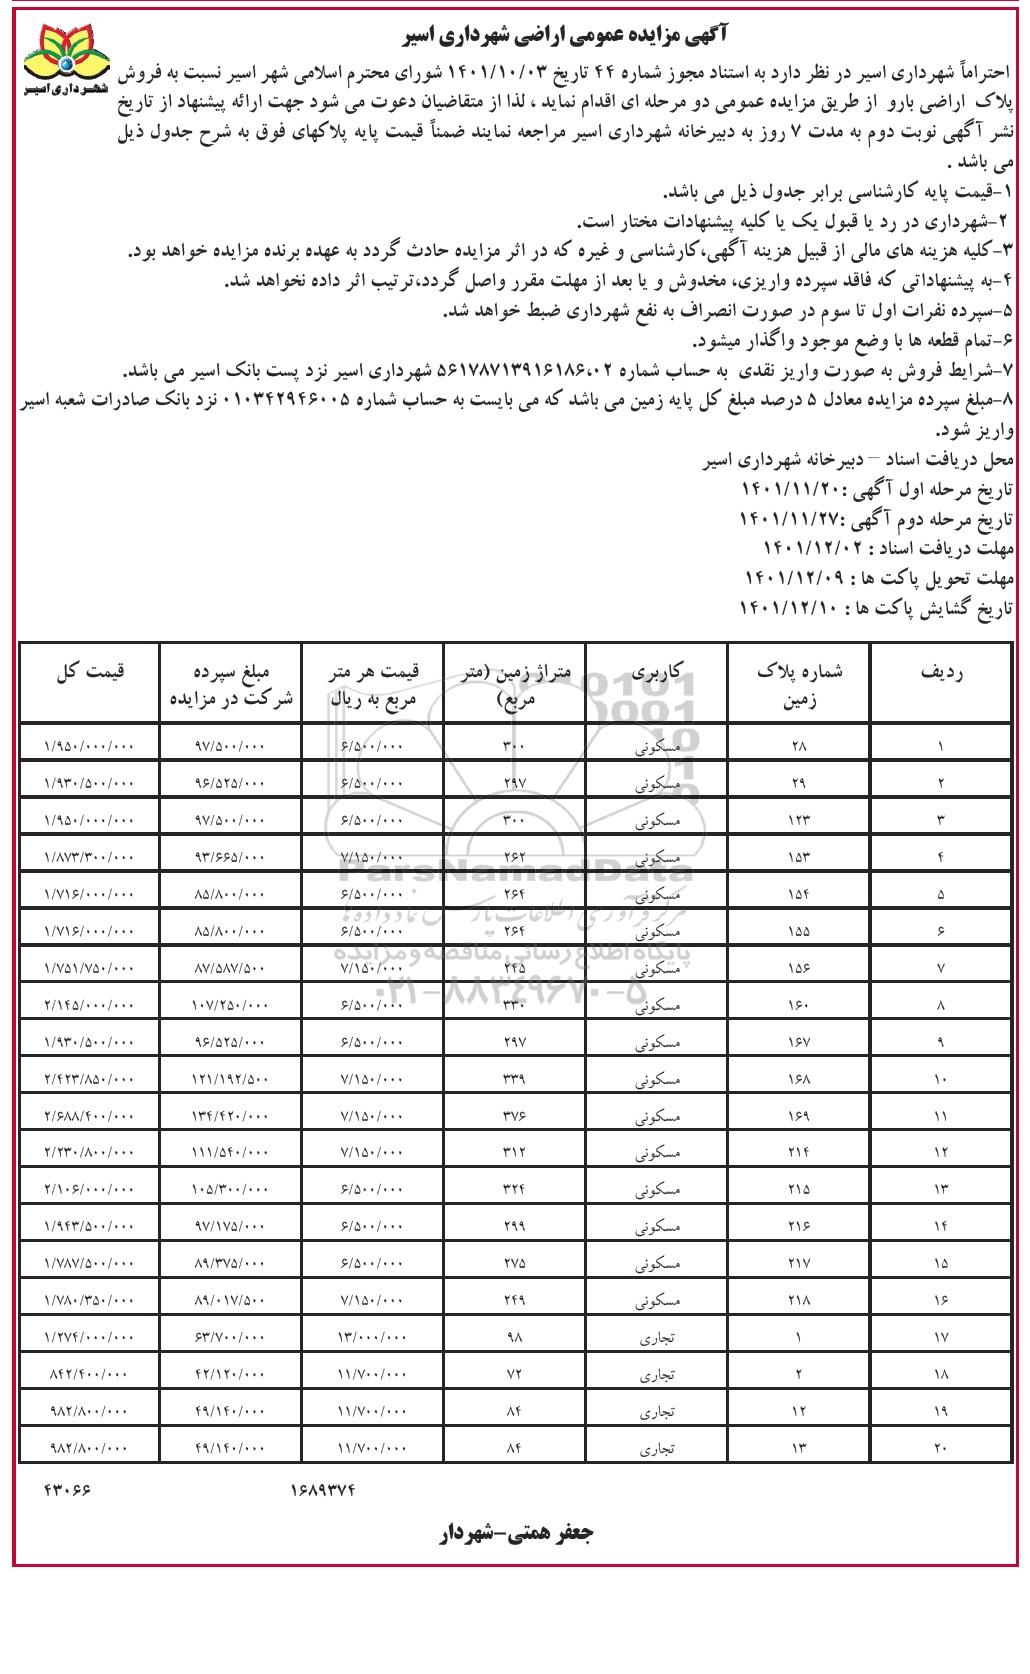 آگهی مزایده عمومی اراضی شهرداری اسیر
شهرداری اسیر
احتراماً شهرداری اسیر در نظر دارد به استناد مجوز شماره ۴۴ تاریخ ۱۴۰۱/۱۰/۰۳ شورای محترم اسلامی شهر اسیر نسبت به فروش
پلاک اراضی بارو از طریق مزایده عمومی دو مرحله ای اقدام نماید ، لذا از متقاضیان دعوت می شود جهت ارائه پیشنهاد از تاریخ
نشر آگهی نوبت دوم به مدت ۷ روز به دبیرخانه شهرداری اسیر مراجعه نمایند ضمناً قیمت پایه پلاکهای فوق به شرح جدول ذیل
می باشد .
۱-قیمت پایه کارشناسی برابر جدول ذیل می باشد.
۲-شهرداری در رد یا قبول یک یا کلیه پیشنهادات مختار است.
۳-کلیه هزینه های مالی از قبیل هزینه آگهی،کارشناسی و غیره که در اثر مزایده حادث گردد به عهده برنده مزایده خواهد بود.
۴-به پیشنهاداتی که فاقد سپرده واریزی، مخدوش و یا بعد از مهلت مقرر واصل گردد،ترتیب اثر داده نخواهد شد.
۵-سپرده نفرات اول تا سوم در صورت انصراف به نفع شهرداری ضبط خواهد شد.
۶-تمام قطعه ها با وضع موجود واگذار میشود.
۷-شرایط فروش به صورت واریز نقدی به حساب شماره ۵۶۱۷۸۷۱۳۹۱۶۱۸۶،۰۲ شهرداری اسیر نزد پست بانک اسیر می باشد.
۸-مبلغ سپرده مزایده معادل ۵ درصد مبلغ کل پایه زمین می باشد که می بایست به حساب شماره ۰۱۰۳۴۲۹۴۶۰۰۵ نزد بانک صادرات شعبه اسیر
واریز شود.
محل دریافت اسناد – دبیرخانه شهرداری اسیر
تاریخ مرحله اول آگهی :۱۴۰۱/۱۱/۲۰
تاریخ مرحله دوم آگهی :۱۴۰۱/۱۱/۲۷
مهلت دریافت اسناد : ۱۴۰۱/۱۲/۰۲
مهلت تحویل پاکت ها : ۱۴۰۱/۱۲/۰۹
تاریخ گشایش پاکت ها : ۱۴۰۱/۱۲/۱۰
ردیف شماره پلاک زمین کاربری متراژ زمین (متر مربع) قیمت هر متر مربع به ریال مبلغ سپرده شرکت در مزایده قیمت کل
۱ ۲۸ مسکونی ۳۰۰ ۶/۵۰۰/۰۰۰ ۹۷/۵۰۰/۰۰۰ ۱/۹۵۰/۰۰۰/۰۰۰
۲ ۲۹ مسکونی ۲۹۷ ۶/۵۰۰/۰۰۰ ۹۶/۵۲۵/۰۰۰ ۱/۹۳۰/۵۰۰/۰۰۰
۳ ۱۲۳ مسکونی ۳۰۰ ۶/۵۰۰/۰۰۰ ۹۷/۵۰۰/۰۰۰ ۱/۹۵۰/۰۰۰/۰۰۰
۴ ۱۵۳ مسکونی ۲۶۲ ۷/۱۵۰/۰۰۰ ۹۳/۶۶۵/۰۰۰ ۱/۸۷۳/۳۰۰/۰۰۰
۵ ۱۵۴ مسکونی ۲۶۴ ۶/۵۰۰/۰۰۰ ۸۵/۸۰۰/۰۰۰ ۱/۷۱۶/۰۰۰/۰۰۰
۶ ۱۵۵ مسکونی ۲۶۴ ۶/۵۰۰/۰۰۰ ۸۵/۸۰۰/۰۰۰ ۱/۷۱۶/۰۰۰/۰۰۰
۷ ۱۵۶ مسکونی ۲۴۵ ۷/۱۵۰/۰۰۰ ۸۷/۵۸۷/۵۰۰ ۱/۷۵۱/۷۵۰/۰۰۰
۸ ۱۶۰ مسکونی ۳۳۰ ۶/۵۰۰/۰۰۰ ۱۰۷/۲۵۰/۰۰۰ ۲/۱۴۵/۰۰۰/۰۰۰
۹ ۱۶۷ مسکونی ۲۹۷ ۶/۵۰۰/۰۰۰ ۹۶/۵۲۵/۰۰۰ ۱/۹۳۰/۵۰۰/۰۰۰
۱۰ ۱۶۸ مسکونی ۳۳۹ ۷/۱۵۰/۰۰۰ ۱۲۱/۱۹۲/۵۰۰ ۲/۴۲۳/۸۵۰/۰۰۰
۱۱ ۱۶۹ مسکونی ۳۷۶ ۷/۱۵۰/۰۰۰ ۱۳۴/۴۲۰/۰۰۰ ۲/۶۸۸/۴۰۰/۰۰۰
۱۲ ۲۱۴ مسکونی ۳۱۲ ۷/۱۵۰/۰۰۰ ۱۱۱/۵۴۰/۰۰۰ ۲/۲۳۰/۸۰۰/۰۰۰
۱۳ ۲۱۵ مسکونی ۳۲۴ ۶/۵۰۰/۰۰۰ ۱۰۵/۳۰۰/۰۰۰ ۲/۱۰۶/۰۰۰/۰۰۰
۱۴ ۲۱۶ مسکونی ۲۹۹ ۶/۵۰۰/۰۰۰ ۹۷/۱۷۵/۰۰۰ ۱/۹۴۳/۵۰۰/۰۰۰
۱۵ ۲۱۷ مسکونی ۲۷۵ ۶/۵۰۰/۰۰۰ ۸۹/۳۷۵/۰۰۰ ۱/۷۸۷/۵۰۰/۰۰۰
۱۶ ۲۱۸ مسکونی ۲۴۹ ۷/۱۵۰/۰۰۰ ۸۹/۰۱۷/۵۰۰ ۱/۷۸۰/۳۵۰/۰۰۰
۱۷ ۱ تجاری ۹۸ ۱۳/۰۰۰/۰۰۰ ۶۳/۷۰۰/۰۰۰ ۱/۲۷۴/۰۰۰/۰۰۰
۱۸ ۲ تجاری ۷۲ ۱۱/۷۰۰/۰۰۰ ۴۲/۱۲۰/۰۰۰ ۸۴۲/۴۰۰/۰۰۰
۱۹ ۱۲ تجاری ۸۴ ۱۱/۷۰۰/۰۰۰ ۴۹/۱۴۰/۰۰۰ ۹۸۲/۸۰۰/۰۰۰
۲۰ ۱۳ تجاری ۸۴ ۱۱/۷۰۰/۰۰۰ ۴۹/۱۴۰/۰۰۰ ۹۸۲/۸۰۰/۰۰۰
ParsNamadData
مرکز فرآوری اطلاعات پارس نماد داده ها
پایگاه اطلاع رسانی مناقصه و مزایده
۰۲۱-۸۸۳۴۹۶۷۰-۵
۱۶۸۹۳۷۴ ۴۳۰۶۶
جعفر همتی-شهردار